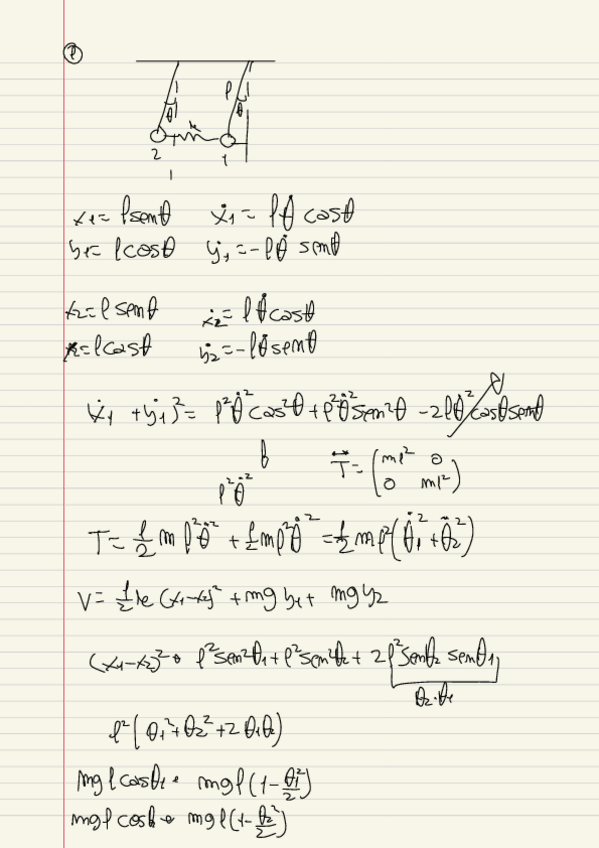 ①
l
θ
θ
k
2
1
x₁ = l senθ ẋ₁ = l θ̇ cosθ
y₁ = l cosθ ẏ₁ = -l θ̇ senθ
x₂ = l senθ ẋ₂ = l θ̇ cosθ
= l cosθ ẏ₂ = -l θ̇ senθ
ẋ₁ + ẏ₁)² = l²θ̇² cos²θ + l²θ̇² sen²θ - 2lθ̇² cosθ senθ
l²θ̇²
T = (ml² 0
0 ml²)
T = 1/2 m l²θ̇² + 1/2 ml²θ̇² = 1/2 ml²(θ̇₁² + θ̇₂²)
V = 1/2 k (x₁-x₂)² + mg y₁ + mg y₂
(x₁-x₂)² = l² sen²θ₁ + l² sen²θ₂ + 2 l² senθ₂ senθ₁
θ₂·θ₁
l² (θ₁² + θ₂² + 2θ₁θ₂)
mg l cosθ₁ = mgl(1-θ₁²/2)
mgl cosθ = mgl(1-θ₂²/2)